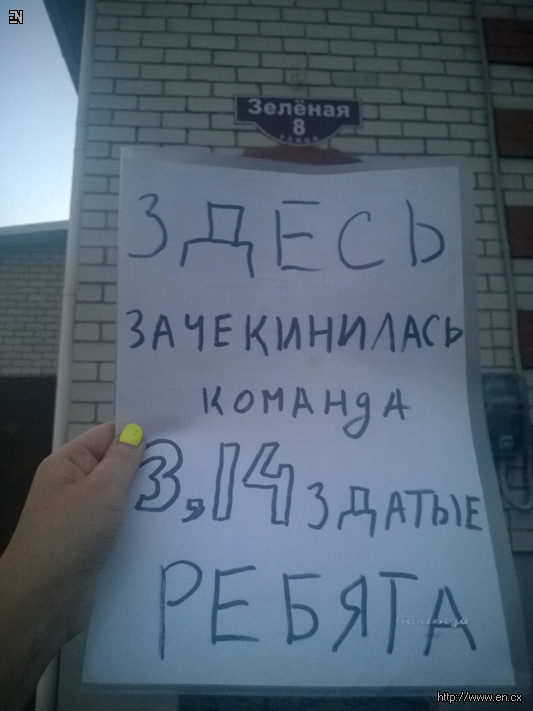 EN
Зелёная
8
УЛИЦА
ЗДЕСЬ
ЗАЧЕКИНИЛАСЬ
КОМАНДА
3,14ЗДАТЫЕ
РЕБЯТА
http://www.en.cx